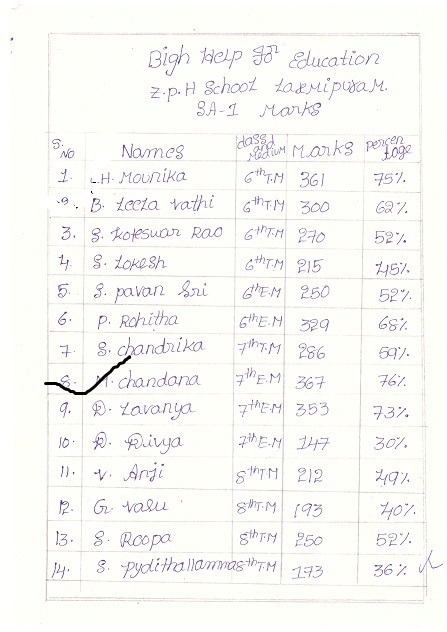 Bigh Help For Education
Z.P.H School Laxmipuram.
SA-1 Marks
S. No Names class and Medium Marks percentage
1. L.H. Mounika 6th T.M 361 75%
2. B. Leela vathi 6th T.M 300 62%
3. S. Koteswar Rao 6th T.M 270 52%
4. S. Lokesh 6th T.M 215 45%
5. S. pavan Sri 6th E.M 250 52%
6. P. Rohitha 6th E.M 329 68%
7. S. chandrika 7th T.M 286 59%
8. M. chandana 7th E.M 367 76%
9. D. Lavanya 7th E.M 353 73%
10. D. Divya 7th E.M 147 30%
11. V. Anji 8th T M 212 49%
12. G. vasu 8th T.M 193 40%
13. S. Roopa 8th T.M 250 52%
14. S. Pydithallamma 8th T.M 173 36%